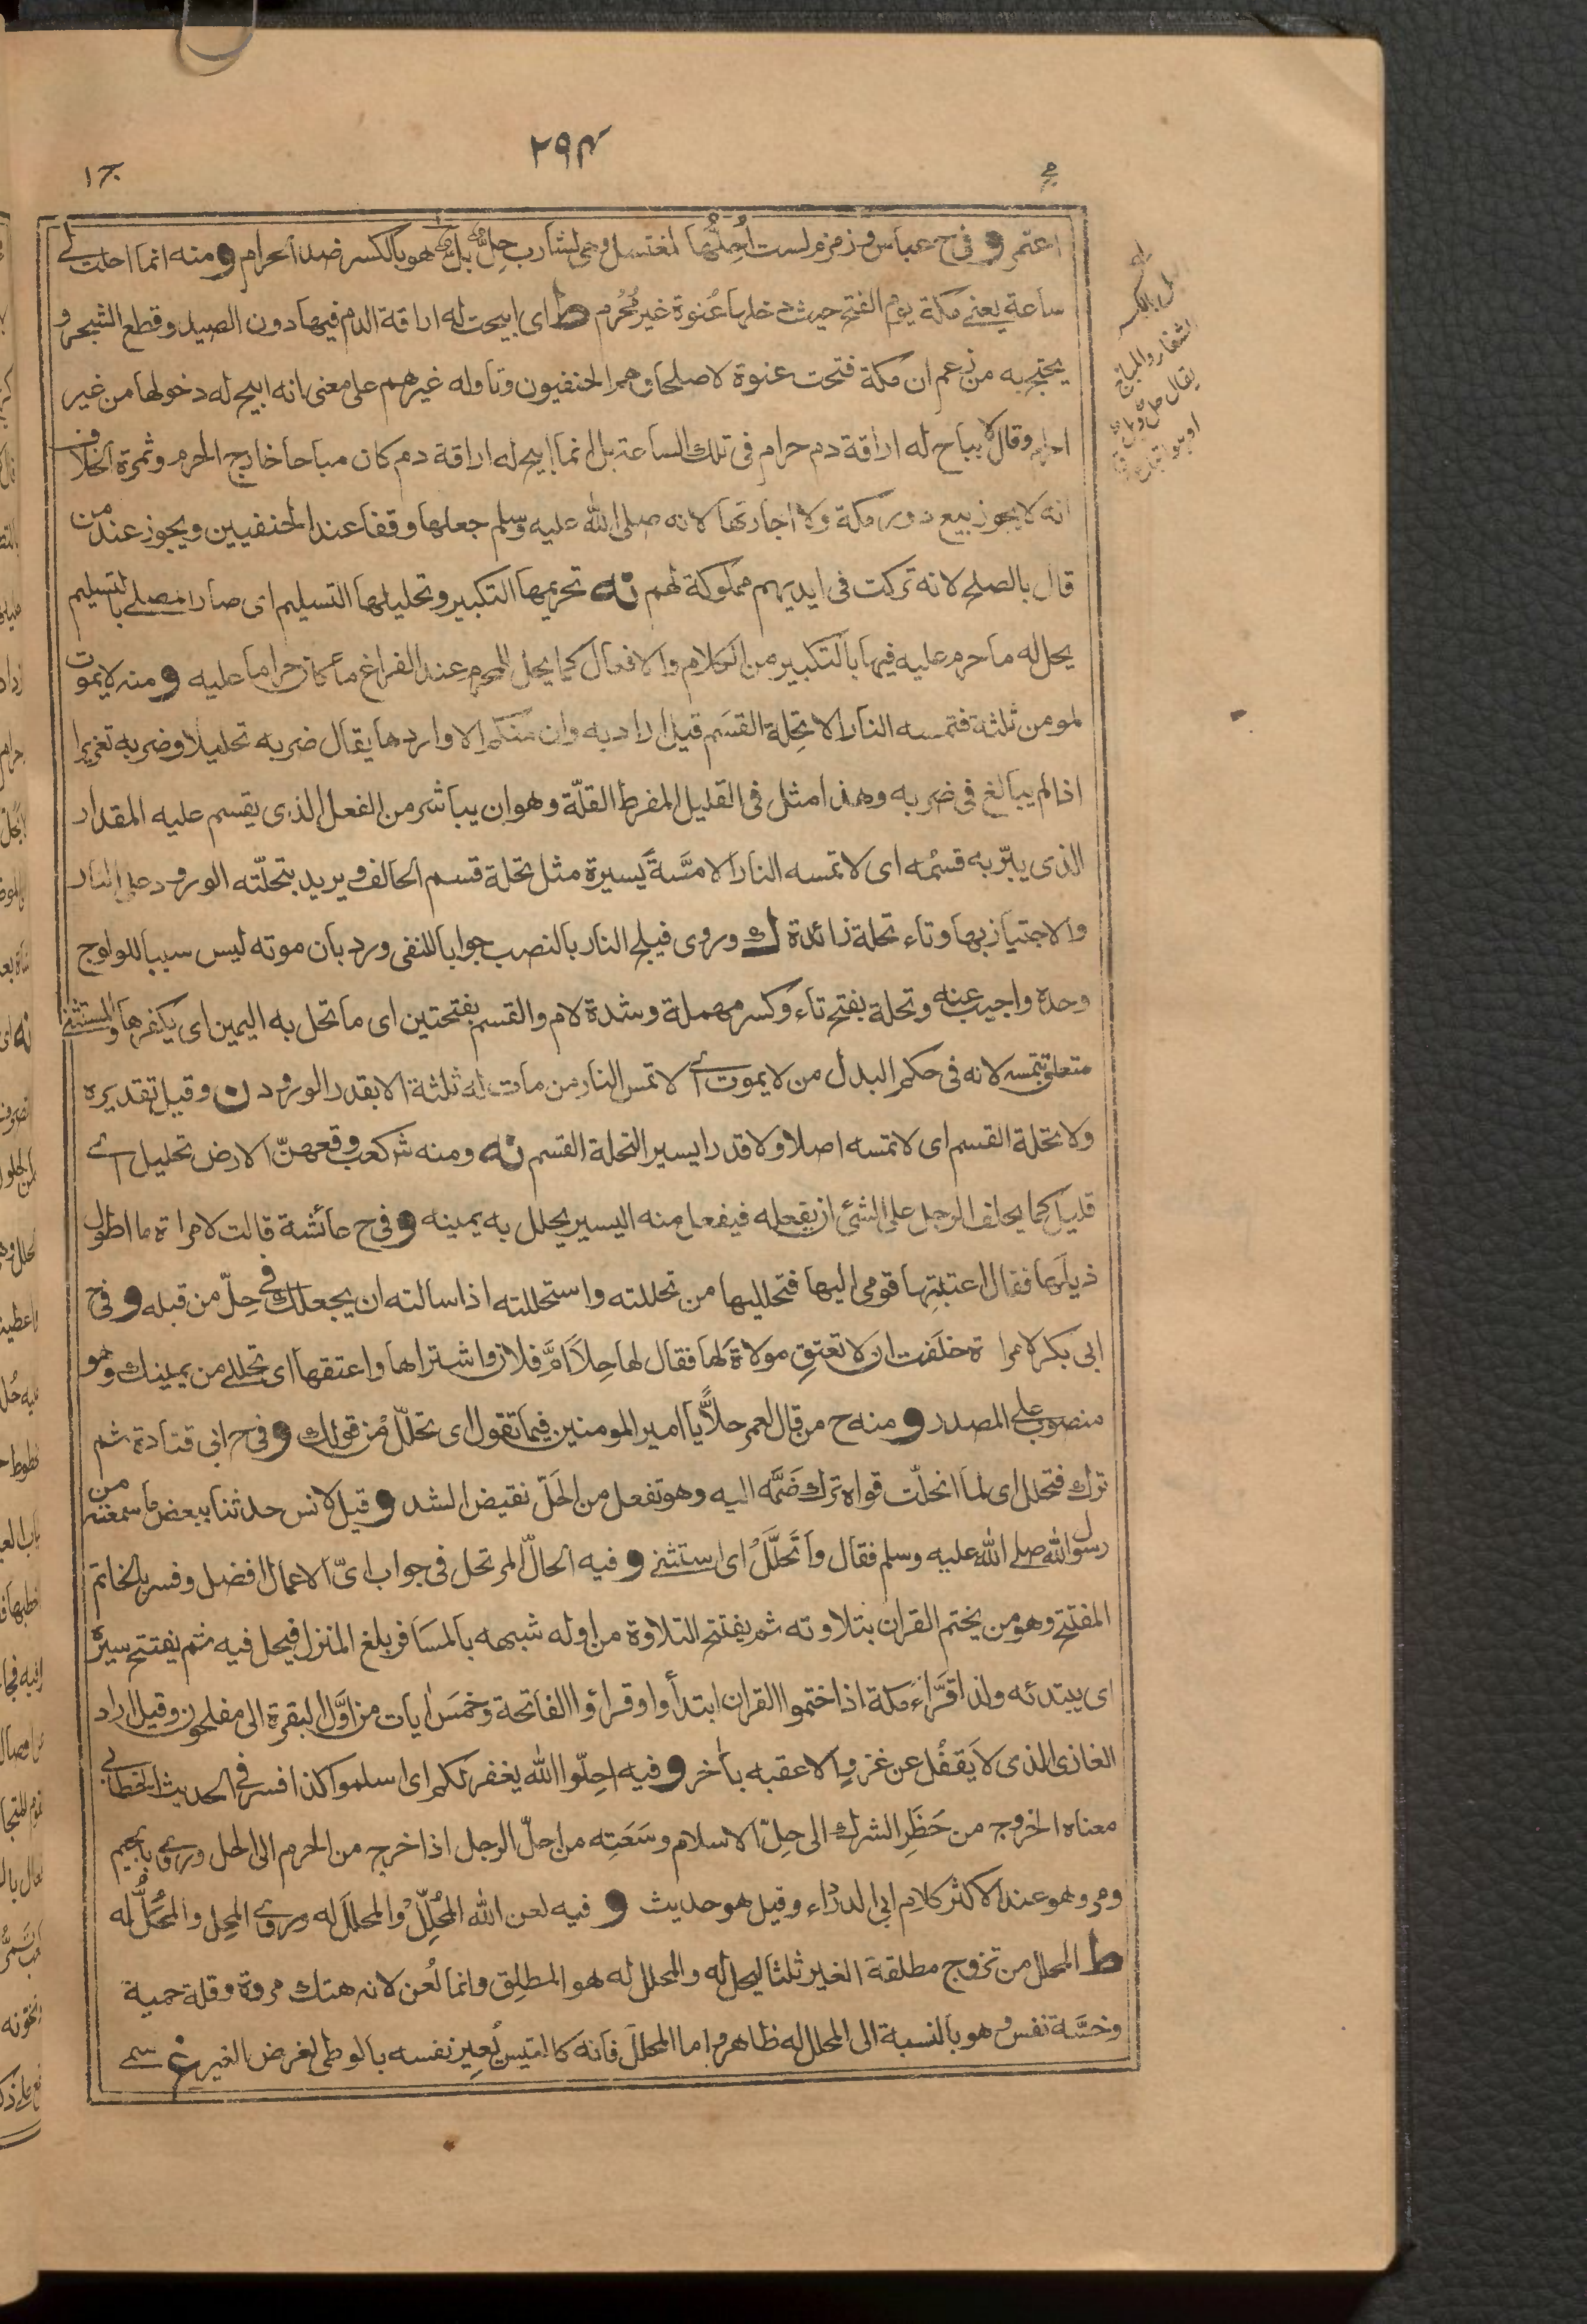 ٢٩٤
ج١
اعتمر و في ح عباس و زمزم لست اُحِلُّها لمغتسل وهي لشارب حِلٌّ بلٌّ هو بالكسر ضد الحرام و منه انما احلت لي
ساعة يعني مكة يوم الفتح حيث دخلها عُنوة غير مُحْرِم ط اى ابيحت له اراقة الدم فيها دون الصيد وقطع الشجر و
يحتج به من زعم ان مكة فتحت عنوة لا صلحا وهم الحنفيون وتاوله غيرهم على معنى انه ابيح له دخولها من غير
احرام وقال لا يباح له اراقة دم حرام في تلك الساعة بل انما ابيح له اراقة دم كان مباحا خارج الحرم وثمرة الخلاف
انه لا يجوز بيع دور مكة ولا اجارتها لانه صلى الله عليه وسلم جعلها وقفا عند الحنفيين ويجوز عند من
قال بالصلح لانه تركت في ايديهم مملوكة لهم نه تحريمها التكبير وتحليلها التسليم اى صار المصلي بالتسليم
يحل له ما حرم عليه فيها بالتكبير من الكلام والافعال كما يحل للمحرم عند الفراغ ما كان حراما عليه و منه لا يموت
لمومن ثلثة فتمسه النار الا تحِلة القسَم قيل اراد به وان منكم الا واردها يقال ضربه تحليلا وضربه تعزيرا
اذا لم يبالغ في ضربه وهذا مثل في القليل المفرط القلّة وهو ان يباشر من الفعل الذى يقسم عليه المقدار
الذى يبّر به قسمُه اى لا تمسه النار الا مسَّةً يسيرة مثل تحلة قسم الحالف ويريد بتحلّته الورود على النار
والاجتياز بها وتاء تحلة زائدة ك وروى فيلج النار بالنصب جوابا للنفى ورد بان موته ليس سببا للولوج
وحده واجيب عنه وتحلة بفتح تاء وكسر مهملة وشدة لام والقسم بفتحتين اى ما تحل به اليمين اى يكفرها والمستثنى
متعلق بتمسه لانه في حكم البدل من لا يموت اى لا تمس النار من مات له ثلثة الا بقدر الورود ن وقيل تقديره
ولا تحلة القسم اى لا تمسه اصلا ولا قدرا يسير التحلة القسم نه ومنه شر كعب وقعهن الارض تحليل اى
قليل كما يحلف الرجل على الشئ ان يفعله فيفعل منه اليسير يحلل به يمينه و في ح عائشة قالت لامراة ما اطول
ذيلها فقال اغتبتِها قومي اليها فتحلليها من تحللته واستحللته اذا سالته ان يجعلك في حِلّ من قبله و في ح
ابى بكر لامراة حلَفت ان لا تعتق مولاة لها فقال لها حِلًا اُمَّ فلان واشتراها واعتقها اى تحللي من يمينك وهو
منصوب على المصدر و منه ح من قال لعمر حلاًّ يا امير المومنين فيما تقول اى تحلّل من قولك و في ح ابى قتادة ثم
ترك فتحلل اى لما انحلّت قواه ترك ضَمَّه اليه وهو تفعل من الحَلّ نقيض الشد و قيل لانس حدثنا ببعض ما سمعته من
رسول الله صلے الله عليه وسلم فقال واَتَحلَّلُ اى استثنى و فيه الحالّ المرتحل في جواب اىّ الاعمال افضل وفسر بالخاتم
المفتتح وهو من يختم القران بتلاوته ثم يفتتح التلاوة من اوله شبهه بالمسافر بلغ المنزل فيحل فيه ثم يفتتح سيره
اى يبتدئه ولذا قرَّاءُ مكة اذا ختموا القران ابتدأوا وقراؤا الفاتحة وخمسَ اٰيات من اوَّل البقرة الى مفلحون وقيل اراد
الغازى الذى لا يَقفُل عن غزوٍ الا عقبه باٰخر و فيه احِلّوا الله يغفر لكم اى اسلموا كذا فسر في الحديث الخطابى
معناه الخروج من حَظَرِ الشرك الى حِلّ الاسلام وسَعَتِه من احلّ الرجل اذا خرج من الحرم الى الحل وروى بالجيم
ومر وهو عند الاكثر كلام ابى الدرداء وقيل هو حديث و فيه لعن الله المُحلِّل والمحلَل له وروى المحِل والمُحَلُّ له
ط المحلل من تزوج مطلقة الغير ثلثا ليحل له والمحلل له هو المطلِق وانما لُعن لانه هتك مروة وقلة حمية
وخسَّة نفس وهو بالنسبة الى المحلل له ظاهر واما المحلل فانه كالتيس يُعير نفسه بالوطى لغرض الغير غ سمے